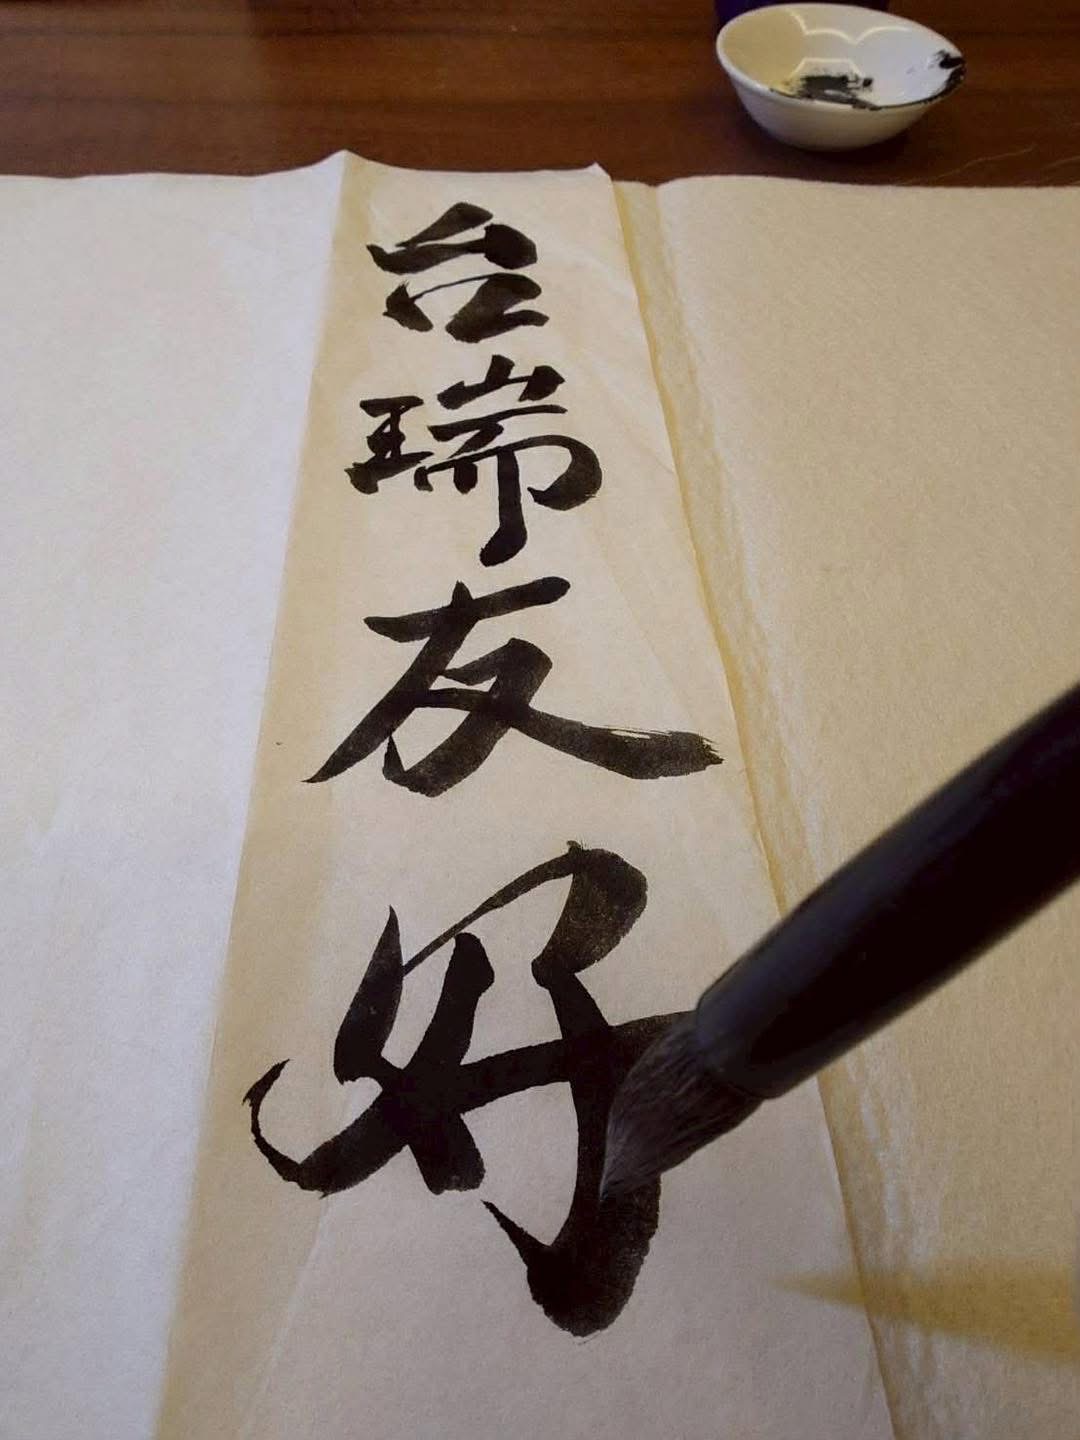 台瑞友好